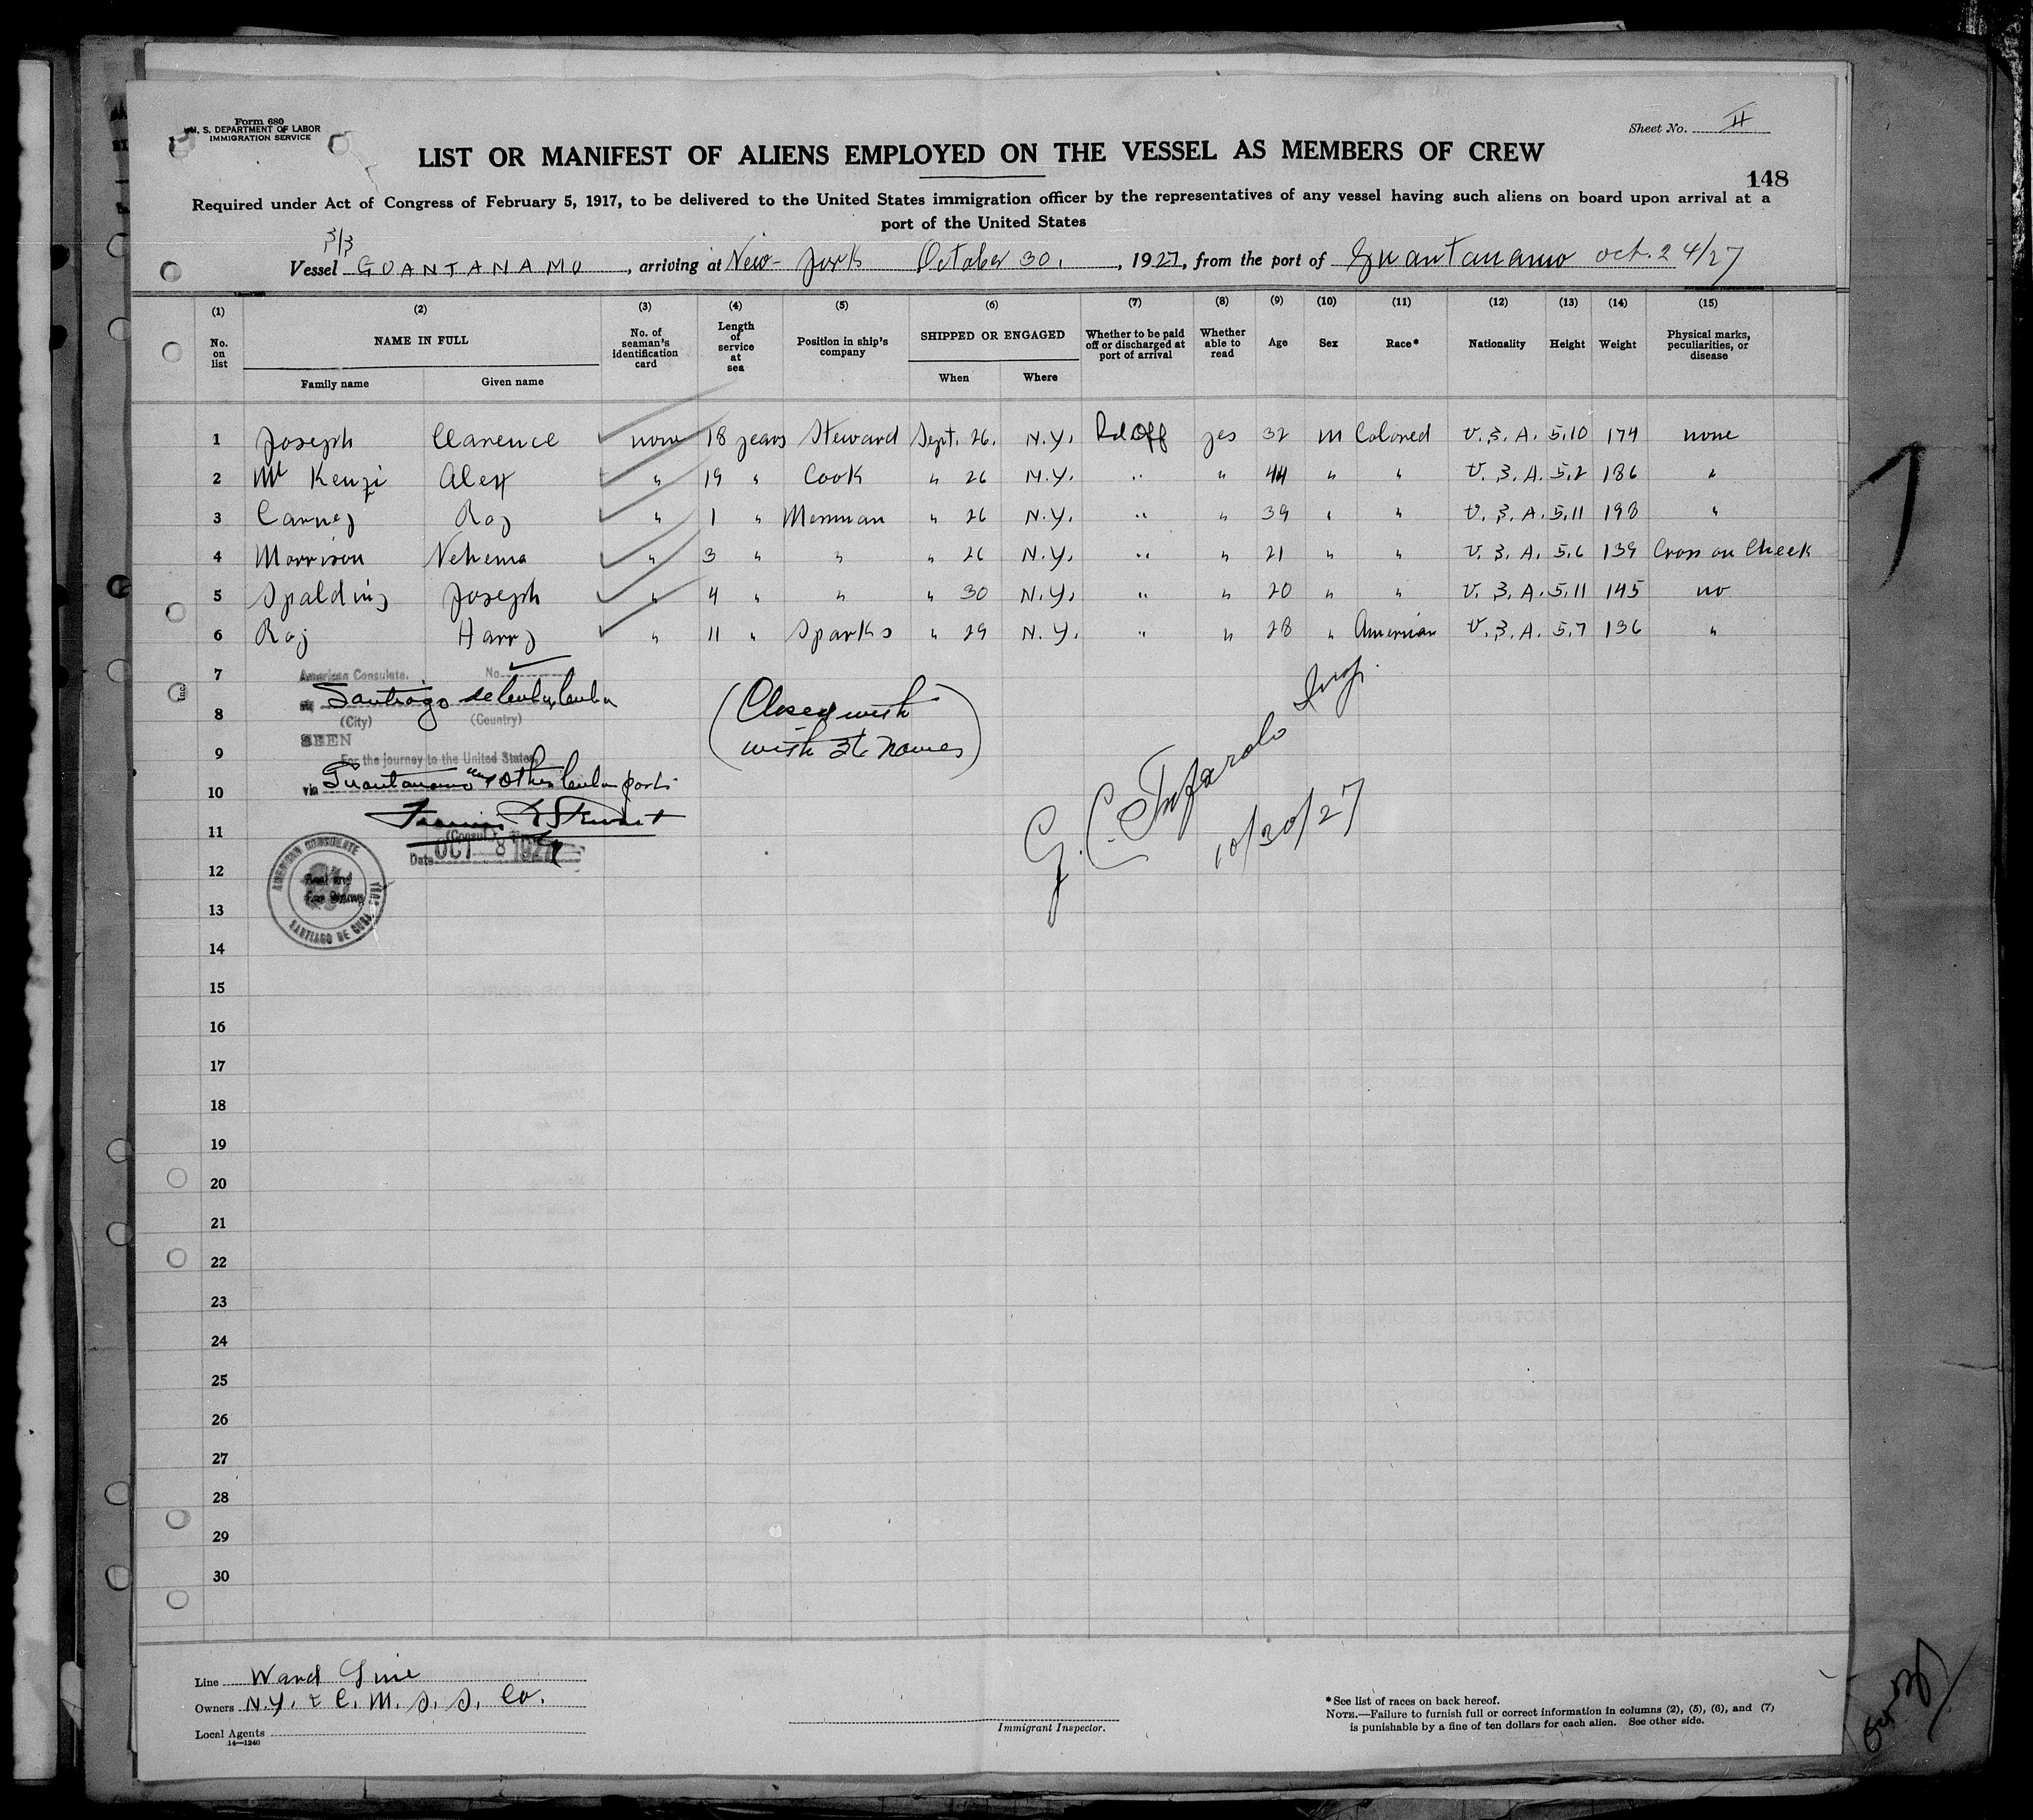 Form 680
U. S. DEPARTMENT OF LABOR
IMMIGRATION SERVICE
Sheet No. II
LIST OR MANIFEST OF ALIENS EMPLOYED ON THE VESSEL AS MEMBERS OF CREW
148
Required under Act of Congress of February 5, 1917, to be delivered to the United States immigration officer by the representatives of any vessel having such aliens on board upon arrival at a
port of the United States
S/S
Vessel GUANTANAMO, arriving at New York October 30, 1927, from the port of Guantanamo Oct. 24/27
(1) (2) (3) (4) (5) (6) (7) (8) (9) (10) (11) (12) (13) (14) (15)
No. on list
NAME IN FULL
Family name Given name
No. of seaman's identification card
Length of service at sea
Position in ship's company
SHIPPED OR ENGAGED
When Where
Whether to be paid off or discharged at port of arrival
Whether able to read
Age Sex Race* Nationality Height Weight
Physical marks, peculiarities, or disease
1 Joseph Clarence none 18 years Steward Sept. 26. N.Y. Pd Off yes 32 M Colored U.S.A. 5.10 174 none
2 Mc Kenzi Alex " 19 " Cook " 26 N.Y. " " 44 " " U.S.A. 5.2 186 "
3 Carney Roy " 1 " Messman " 26 N.Y. " " 39 " " U.S.A. 5.11 198 "
4 Morrison Nehema " 3 " " " 26 N.Y. " " 21 " " U.S.A. 5.6 139 Cross on Cheek
5 Spalding Joseph " 4 " " " 30 N.Y. " " 20 " " U.S.A. 5.11 145 no
6 Roy Harry " 11 " Sparks " 29 N.Y. " " 28 " American U.S.A. 5.7 136 "
7
8
9
10
11
12
13
14
15
16
17
18
19
20
21
22
23
24
25
26
27
28
29
30
American Consulate. No.
Santiago de Cuba, Cuba
(City) (Country)
SEEN
For the journey to the United States
via Guantanamo and other Cuban ports
(Consul)
Date OCT 8 1927
AMERICAN CONSULATE
SANTIAGO DE CUBA
(Closed with
with 36 names)
10/30/27
Line Ward Line
Owners N.Y. & C. M. S. S. Co.
Local Agents
14—1240
Immigrant Inspector.
*See list of races on back hereof.
NOTE.—Failure to furnish full or correct information in columns (2), (5), (6), and (7)
is punishable by a fine of ten dollars for each alien. See other side.